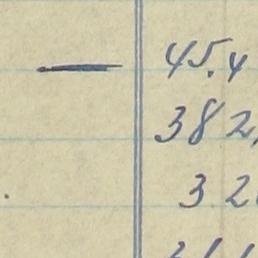 — 45.4
382,
32